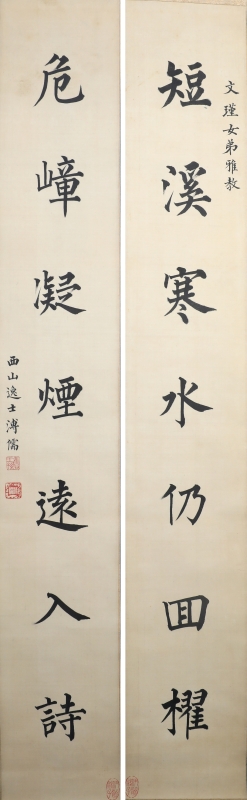 文瑾女弟雅教
短溪寒水仍回櫂
危嶂凝煙遠入詩
西山逸士溥儒